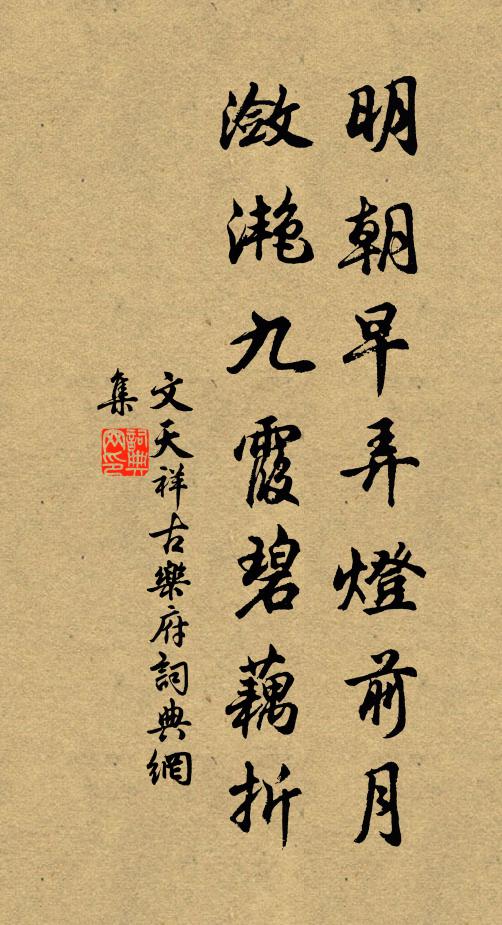 明朝早弄燈前月
瀲灔九霞碧藕折
文天祥古樂府詞典網
集
詞典網印